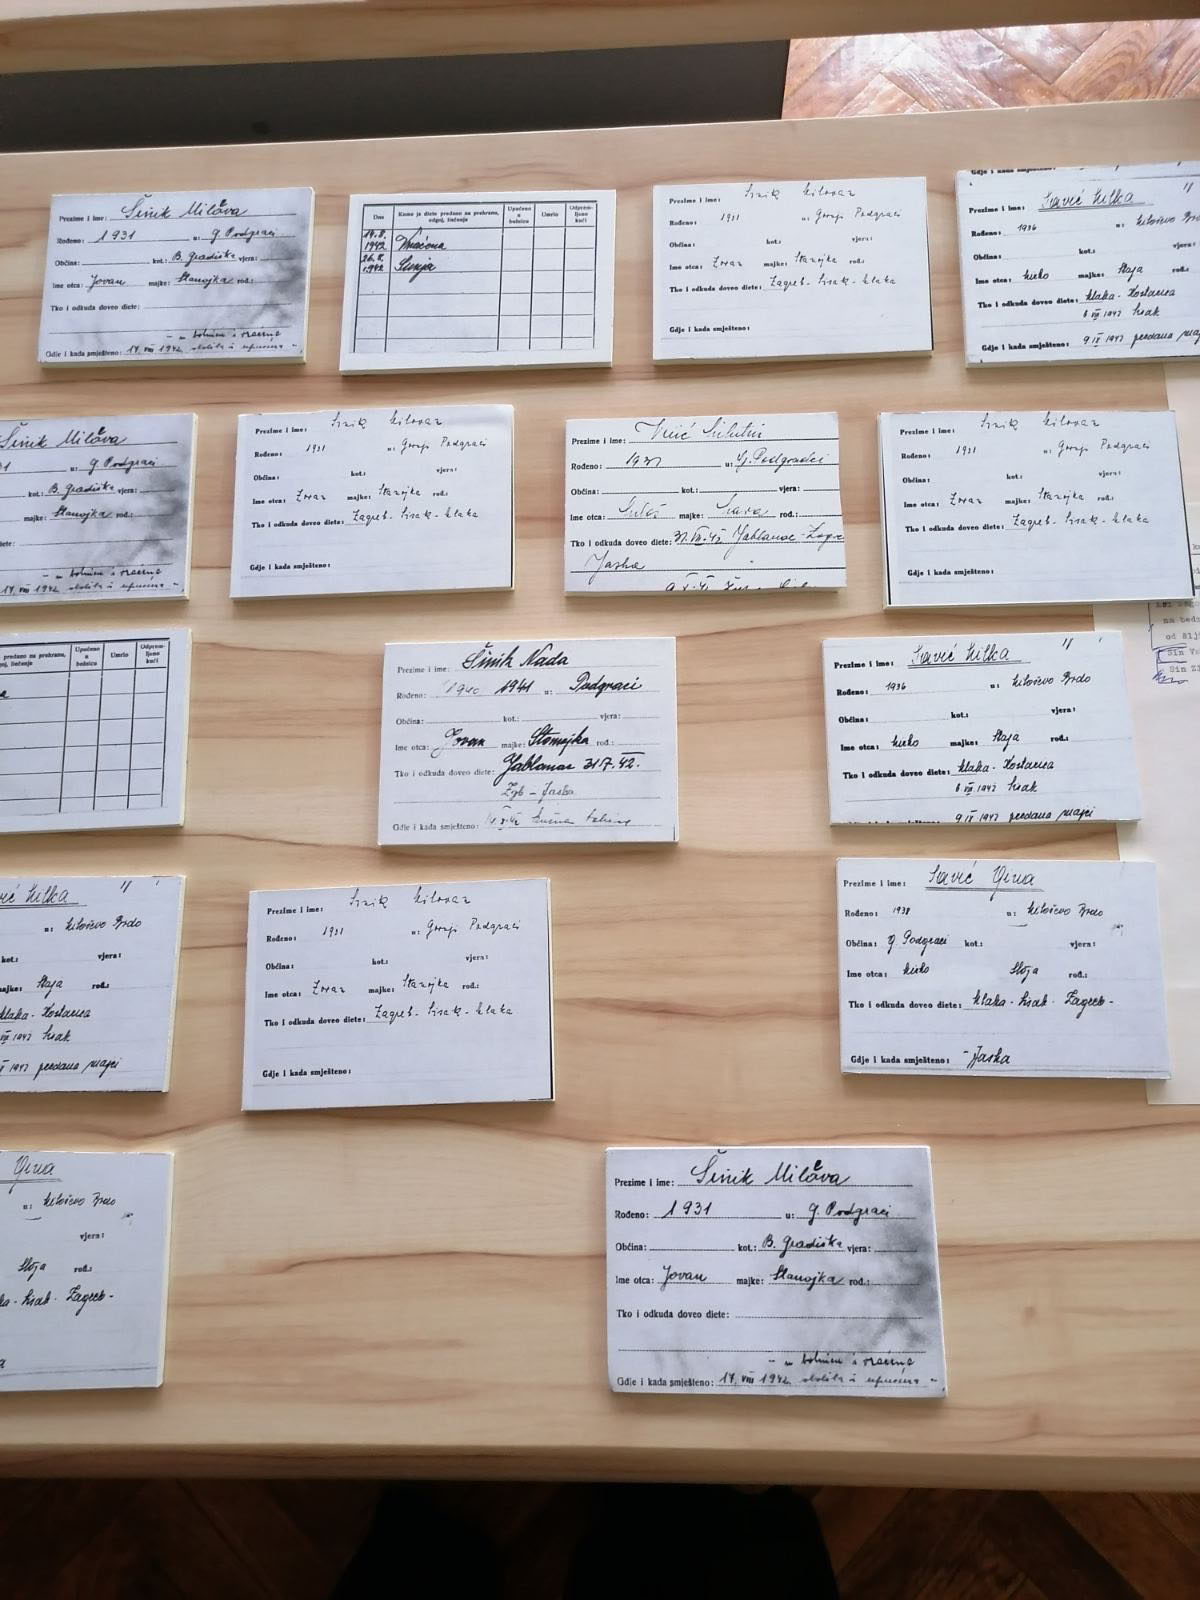 Prezime i ime: Šinik Milava
Rođeno: 1931 u: G. Podgraci
Općina: kot.: B. Gradiška vjera:
Ime otca: Jovan majke: Stanojka rod.:
Tko i odkuda doveo diete:
Gdje i kada smješteno: 14. VIII 1942
Dan Kome je diete predano na prehranu, odgoj, liečenje Upućeno u bolnicu Umrlo Odpremljeno kući
14.8. 1942
26.8. 1942 Sunja
Prezime i ime: Šinik Milovan
Rođeno: 1931 u: Gornji Podgraci
Općina: kot.: vjera:
Ime otca: majke: Stanojka rod.:
Tko i odkuda doveo diete: Zagreb - Sisak - Mlaka
Gdje i kada smješteno:
Gdje i kada smješteno:
Prezime i ime: Savić Milka "
Rođeno: 1936 u: Miloševo
Općina: kot.:
Ime otca: Mirko majke: Staja
Tko i odkuda doveo diete: Mlaka - Kostanica
Sisak
Gdje i kada smješteno: 9 IX 1942 predana
Šinik Milava
u: G. Podgraci
kot.: B. Gradiška vjera:
majke: Stanojka rod.:
diete:
14. VIII 1942
Prezime i ime: Šinik Milovan
Rođeno: 1931 u: Gornji Podgraci
Općina: kot.: vjera:
Ime otca: majke: Stanojka rod.:
Tko i odkuda doveo diete: Zagreb - Sisak - Mlaka
Gdje i kada smješteno:
Prezime i ime: Milutin
Rođeno: u: G. Podgradci
Općina: kot.: vjera:
Ime otca: majke: rod.:
Tko i odkuda doveo diete: 31. VII. 42 Jablanac -
Jaska
Prezime i ime: Šinik Milovan
Rođeno: 1931 u: Gornji Podgraci
Općina: kot.: vjera:
Ime otca: majke: Stanojka rod.:
Tko i odkuda doveo diete: Zagreb - Sisak - Mlaka
Gdje i kada smješteno:
predano na prehranu, odgoj, liečenje Upućeno u bolnicu Umrlo Odpremljeno kući
Prezime i ime: Šinik Nada
Rođeno: 1940 1941 u: Podgraci
Općina: kot.: vjera:
Ime otca: Jovan majke: Stomajka rod.:
Tko i odkuda doveo diete: Jablanac 31.7.42.
Zgb - Jaska
Gdje i kada smješteno:
Prezime i ime: Savić Milka "
Rođeno: 1936 u: Miloševo Brdo
Općina: kot.: vjera:
Ime otca: Mirko majke: Staja rod.:
Tko i odkuda doveo diete: Mlaka - Kostanica
Sisak
9 IX 1942 predana majci
Milka "
u: Miloševo Brdo
kot.: vjera:
majke: Staja rod.:
Mlaka - Kostanica
Sisak
1942 predana majci
Prezime i ime: Šinik Milovan
Rođeno: 1931 u: Gornji Podgraci
Općina: kot.: vjera:
Ime otca: majke: Stanojka rod.:
Tko i odkuda doveo diete: Zagreb - Sisak - Mlaka
Gdje i kada smješteno:
Prezime i ime: Savić
Rođeno: 1938 u: Miloševo Brdo
Općina: G. Podgraci kot.: vjera:
Ime otca: Mirko Stoja rod.:
Tko i odkuda doveo diete: Mlaka - Sisak - Zagreb -
Gdje i kada smješteno: - Jaska
u: Miloševo Brdo
vjera:
Stoja rod.:
- Sisak - Zagreb -
Prezime i ime: Šinik Milava
Rođeno: 1931 u: G. Podgraci
Općina: kot.: B. Gradiška vjera:
Ime otca: Jovan majke: Stanojka rod.:
Tko i odkuda doveo diete:
Gdje i kada smješteno: 14. VIII 1942